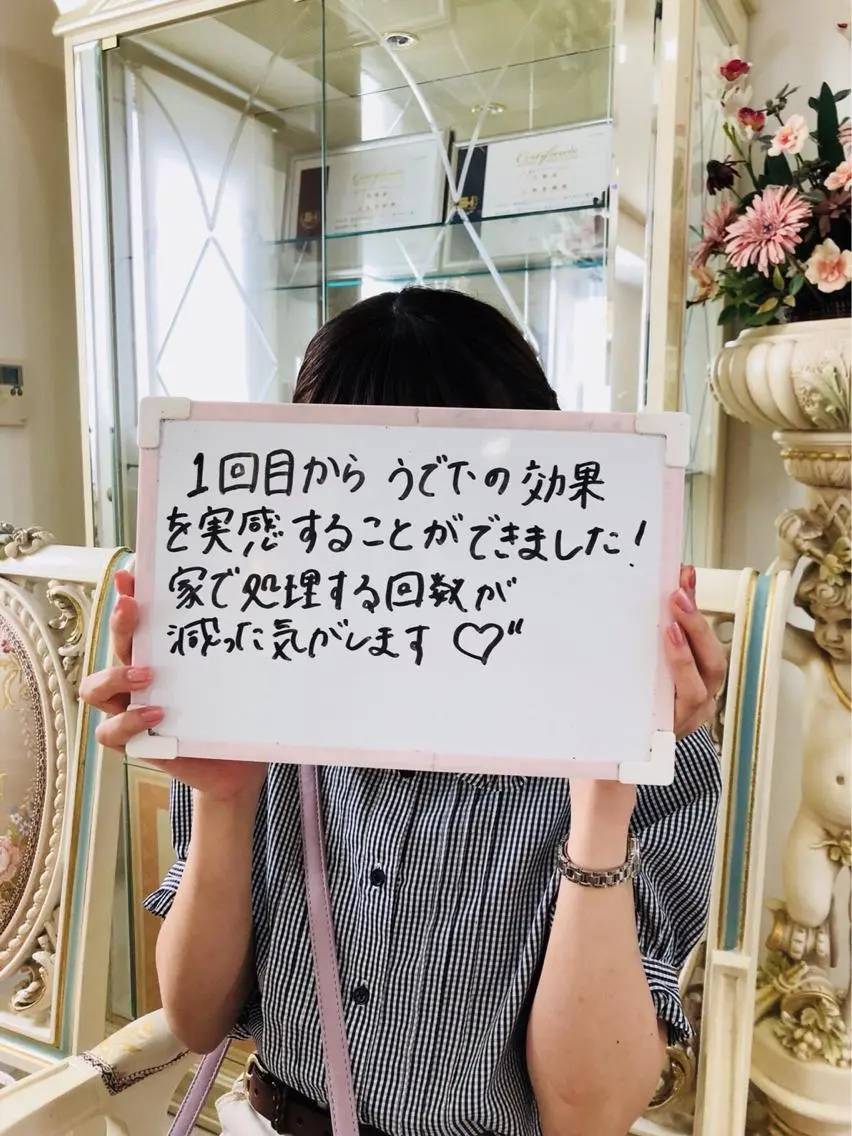 Certificate
Certificate
1回目から うで下の効果
を実感することができました!
家で処理する回数が
減った気がします♡"